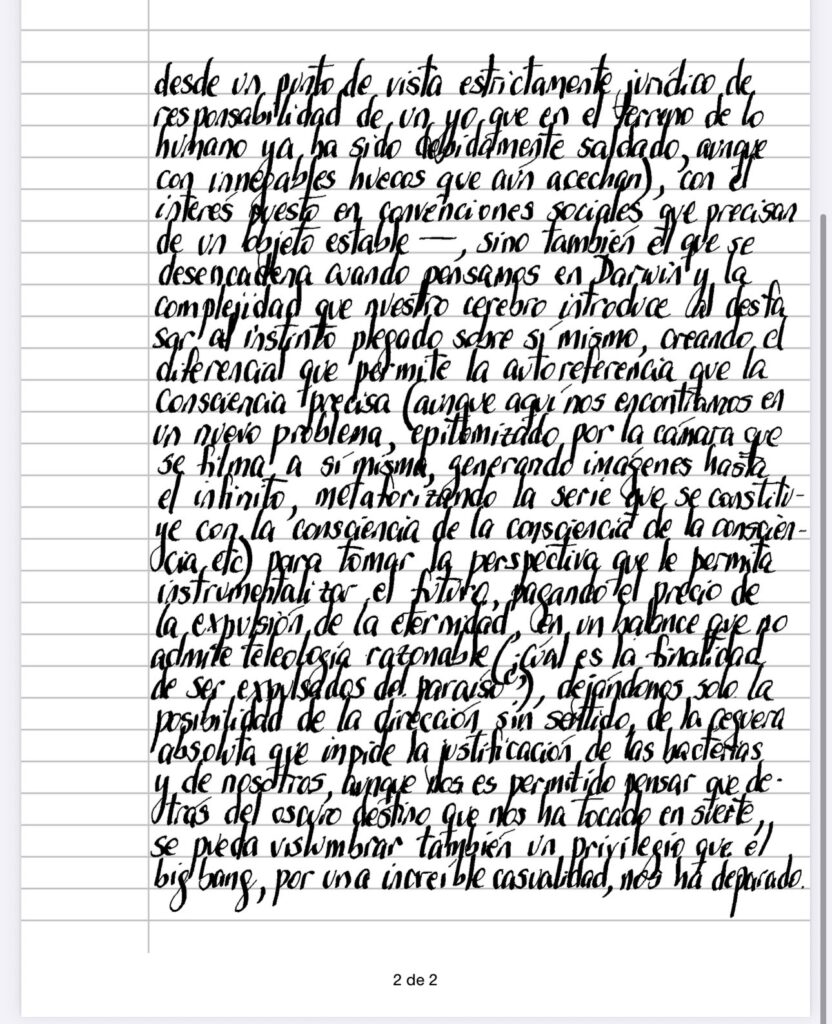 desde un punto de vista estrictamente jurídico de
responsabilidad de un yo que en el terreno de lo
humano ya ha sido debidamente saldado, aunque
con innegables huecos que aún acechan), con el
interés puesto en convenciones sociales que precisan
de un objeto estable —, sino también el que se
desencadena cuando pensamos en Darwin y la
complejidad que nuestro cerebro introduce al desfa
sar al instinto plegado sobre sí mismo, creando el
diferencial que permite la autoreferencia que la
consciencia precisa (aunque aquí nos encontramos en
un nuevo problema, epitomizado por la cámara que
se filma a sí misma, generando imágenes hasta
el infinito, metaforizando la serie que se constitu-
ye con la consciencia de la consciencia de la conscien-
cia, etc) para tomar la perspectiva que le permita
instrumentalizar el futuro, pagando el precio de
la expulsión de la eternidad, en un balance que no
admite teleología razonable (¿cuál es la finalidad
de ser expulsados del paraíso?), dejándonos solo la
posibilidad de la dirección sin sentido, de la ceguera
absoluta que impide la justificación de las bacterias
y de nosotros, aunque nos es permitido pensar que de-
trás del oscuro destino que nos ha tocado en suerte,
se pueda vislumbrar también un privilegio que el
big bang, por una increíble casualidad, nos ha deparado.
2 de 2